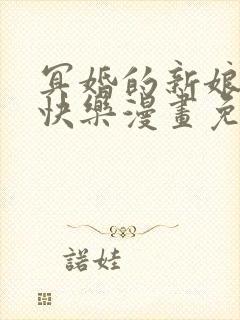 冥婚的新娘
快樂漫畫免
諾娃